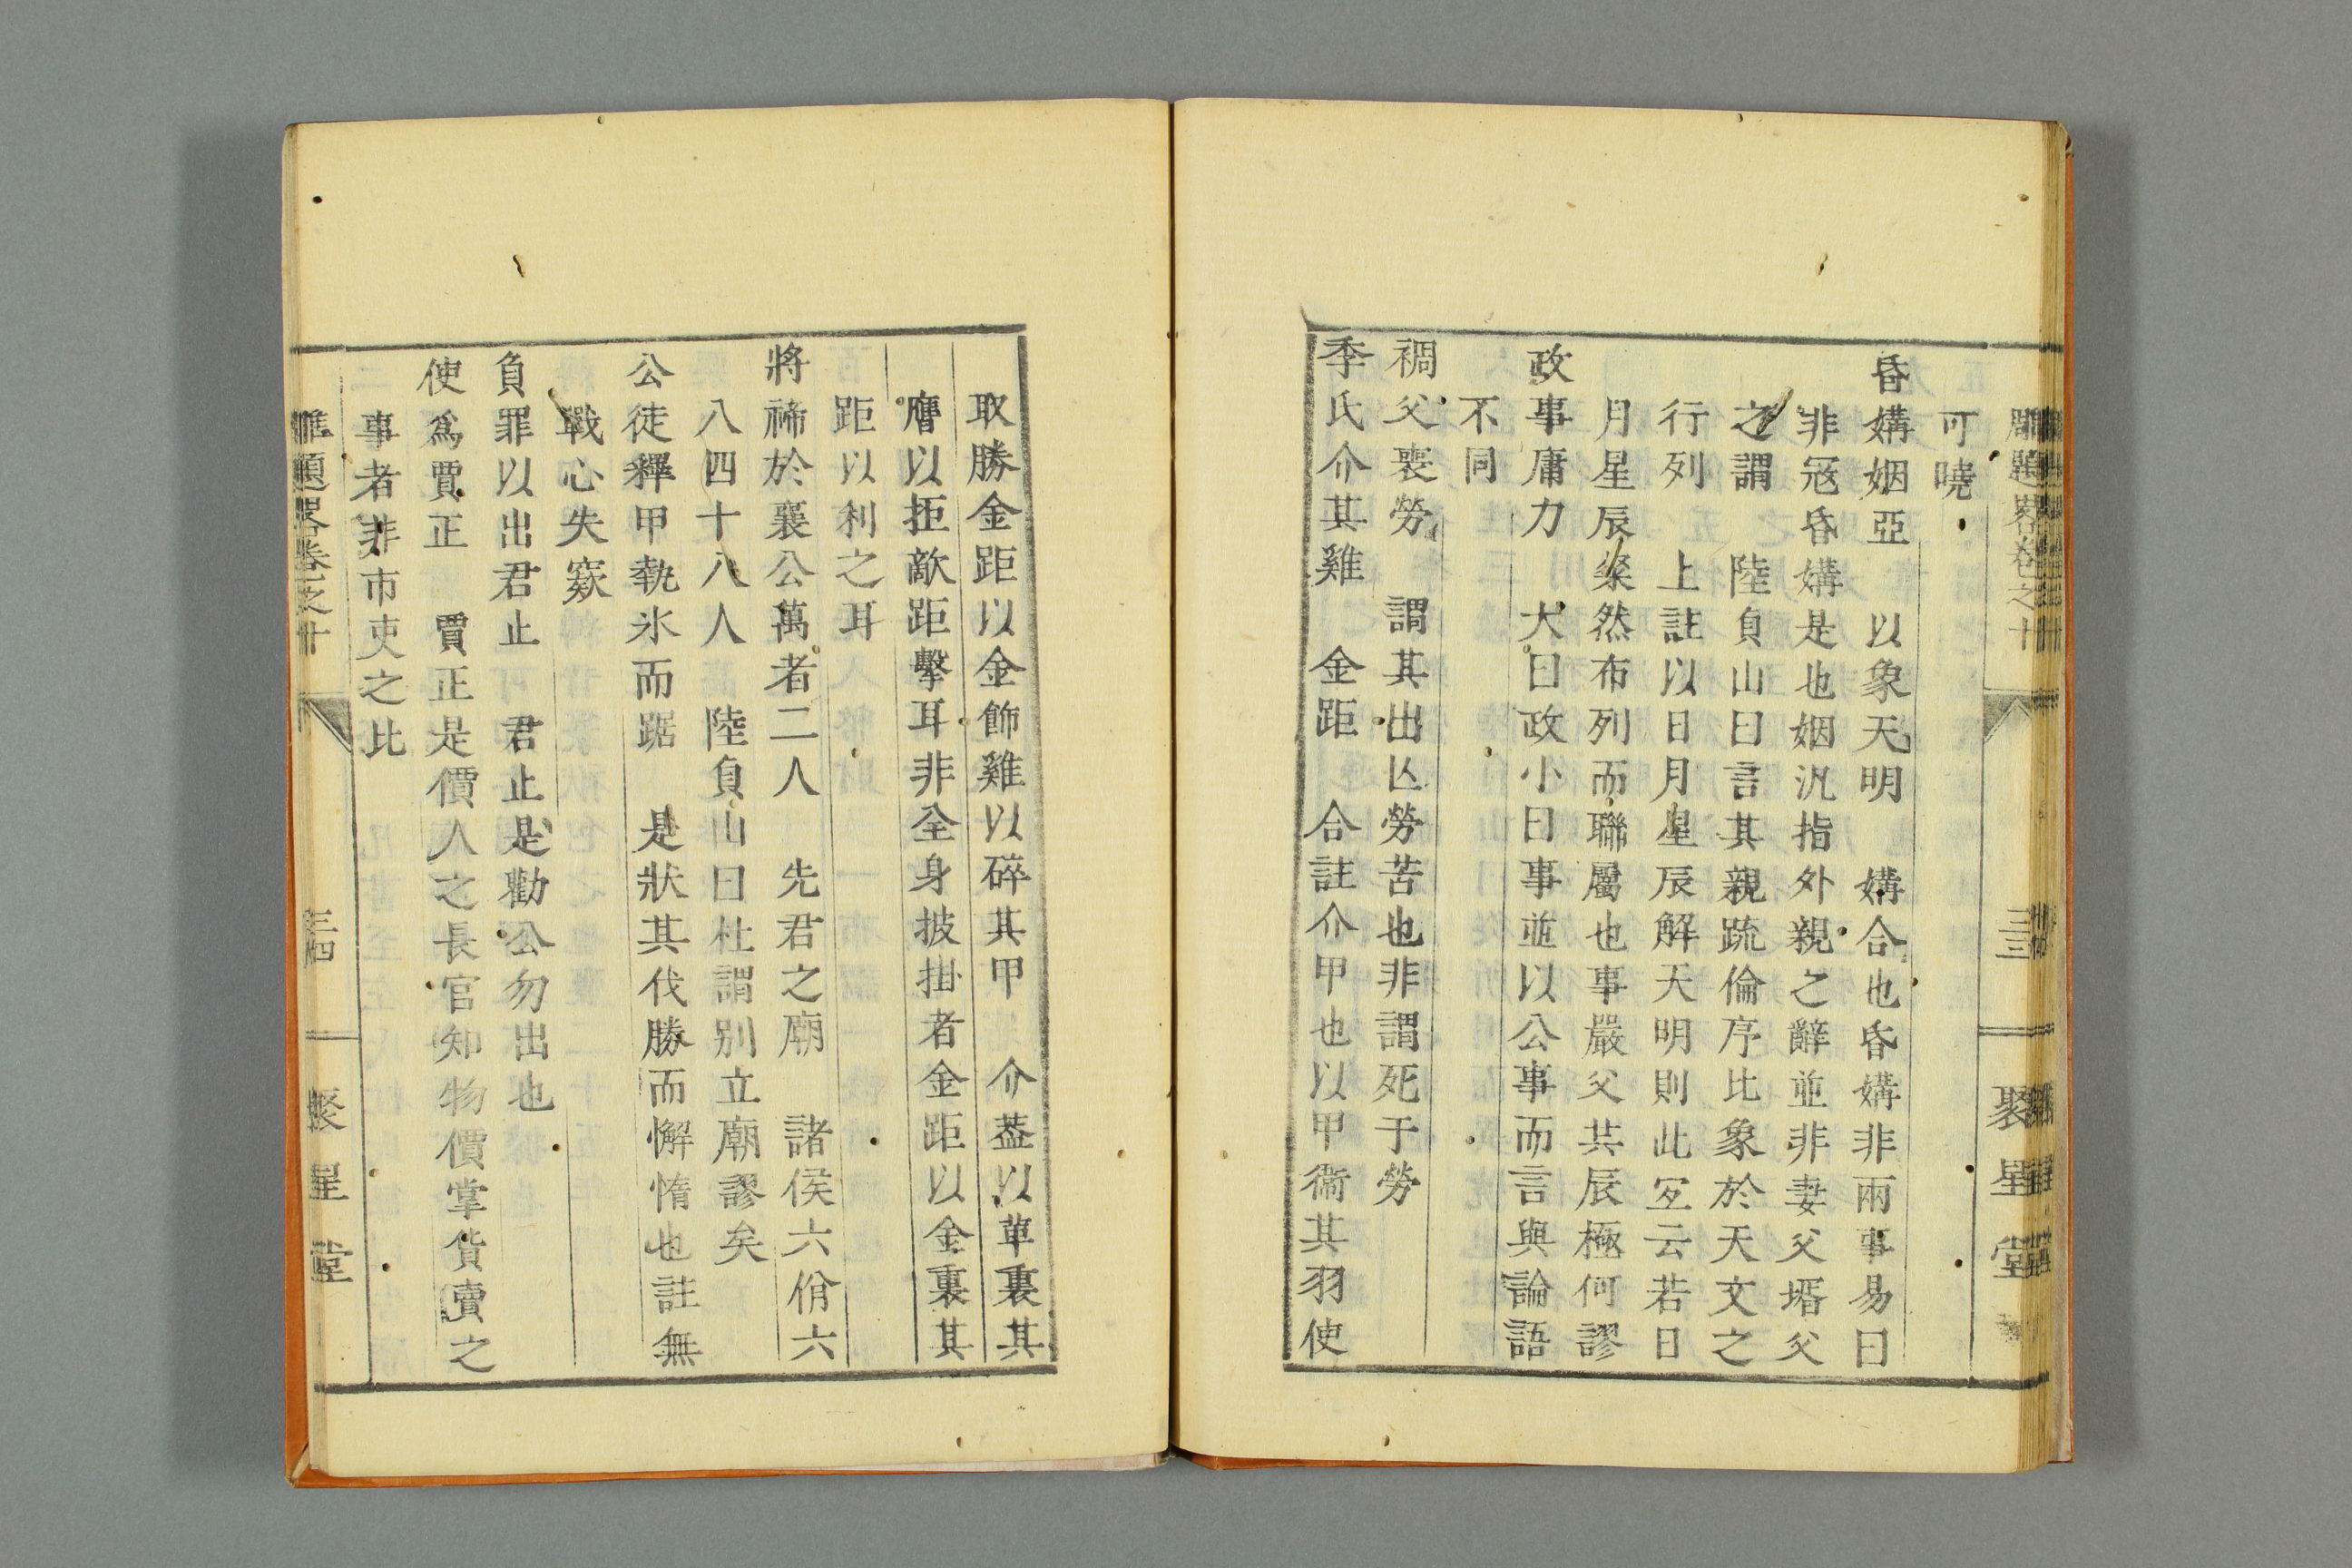 可曉
昏媾姻亞　以象天明　媾合也昏媾非兩事易曰
非寇昏媾是也姻汎指外親之辭並非妻父壻父
之謂　陸負山曰言其親疏倫序比象於天文之
行列　上註以日月星辰解天明則此宜云若日
月星辰粲然布列而聯屬也事嚴父共辰極何謬
政事庸力　大曰政小曰事並以公事而言與論語
不同
禂父喪勞　謂其出亾勞苦也非謂死于勞
季氏介其雞　金距　合註介甲也以甲衞其羽使
取勝金距以金飾雞以碎其甲　介葢以革裏其
膺以拒敵距擊耳非全身披掛者金距以金裏其
距以利之耳
將禘於襄公萬者二人　先君之廟　諸侯六佾六
八四十八人　陸負山曰杜謂别立廟謬矣
公徒釋甲執氷而踞　是狀其伐勝而懈惰也註無
戰心失窾
負罪以出君止　君止是勸公勿出也
使爲賈正　賈正是價人之長官知物價掌貨賣之
事者非市吏之比
雕題畧卷之十
三四
聚星堂